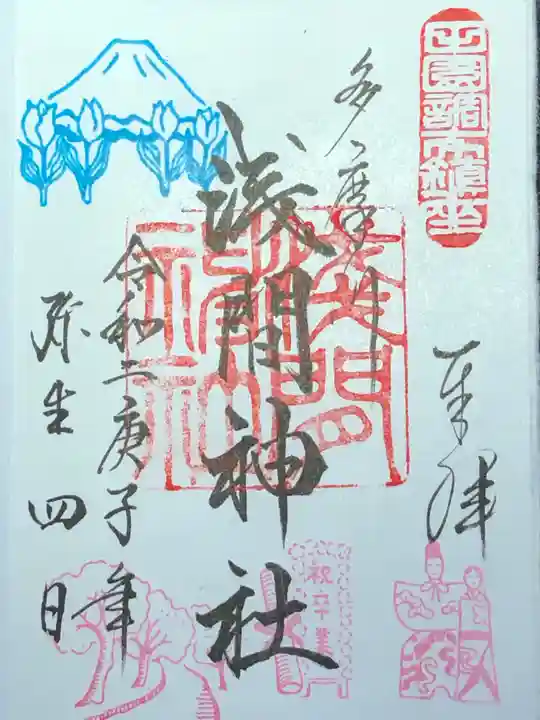 田園調布鎮座
奉拝
多摩川
浅間神社
令和二庚子年
弥生四日
浅間神社
祝卒業